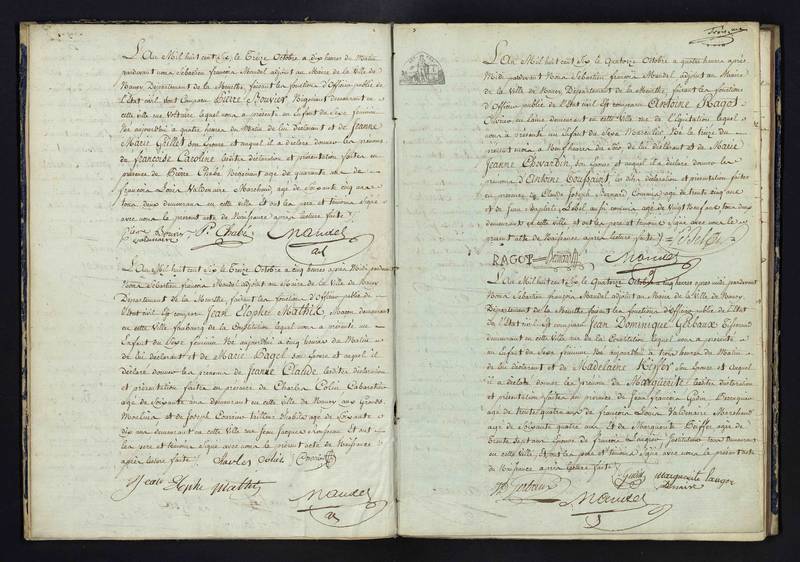 L'An Mil huit cent Six le Treize Octobre a dix heures du Matin
pardevant nous Sebastien françois Mandel adjoint au Maire de la Ville de
Nancy Departement de la Meurthe, faisant les fonctions d'Officier public de
l'Etat civil, sont Comparu Pierre Bouvier Négociant demeurant en
cette ville rue Voltaire lequel nous a présenté un Enfant du Sexe feminin
Né aujourdhui a quatre heures du Matin de lui declarant et de Jeanne
Marie Gillet son Epouse et auquel il a declaré donner les prénoms
de francoise Caroline lesdites déclaration et présentation faites en
présence de Pierre Chabé Négociant agé de quarante de
françois Louis Valdenaire Marchand, agé de Soixante cinq ans
tous deux demeurant en cette ville et ont les pere et temoins Signé
avec nous le présent acte de Naissance après lecture faite
Pierre Bouvier P. Chabé Mandel
Valdenaire
L'An Mil huit cent Six le Treize Octobre a cinq heures après Midi pardevant
Nous Sebastien françois Mandel adjoint au Maire de la Ville de Nancy
Departement de la Meurthe, faisant les fonctions d'Officier public de
l'Etat civil Est comparu Jean Elophe Mathis, Maçon demeurant
en cette Ville faubourg de la Constitution lequel nous a présenté un
Enfant du Sexe féminin Né aujourdhui a cinq heures du Matin
de lui déclarant et de Marie Dagot Son Epouse et auquel il
déclaré donner les prenoms de Jeanne Claude lesdites déclaration
et présentation faites en présence de Charles Colin Cabaretier
agé de Soixante ans demeurant en cette Ville de Nancy aux Grands
Moulins et de Joseph tailleur d'habits agé de Soixante
dix ans demeurant en cette Ville rue Jean Jacques Rousseau Et ont
les pere et temoins Signé avec nous le présent acte de Naissance
après lecture faite Charles Colin
Jean Elophe Mathis
Mandel
L'An Mil huit cent Six le Quatorze Octobre a quatre heures après
Midi pardevant Nous Sebastien françois Mandel adjoint au Maire
de la Ville de Nancy Département de la Meurthe, faisant les fonctions
d'Officier public de l'Etat civil Est comparu Antoine Ragot
Ouvrier en laine demeurant en cette Ville rue de l'Equitation lequel
nous a présenté un Enfant du Sexe Masculin Né le treize du
présent mois a Neuf heures du Soir de lui déclarant et de Marie
Jeanne Chevardin, son Epouse et auquel il a déclaré donner les
prenoms d'Antoine Toussaint, les dites déclaration et présentation faites
en présence de Claude Joseph Bernard Commis agé de trente cinq ans
et de Jean Baptiste Lebel aussi commis agé de Vingt Neuf ans tous deux
demeurant en cette ville, et ont les pere et temoins Signé avec nous le
présent acte de Naissance après lecture faite
RAGOT Bernard Mandel
L'An Mil huit cent Six le Quatorze Octobre a cinq heures après midi pardevant
Nous Sebastien françois Mandel adjoint au Maire de la Ville de Nancy
Departement de la Meurthe faisant les fonctions d'Officier public de l'Etat
civil Est comparu Jean Dominique Gerbaux
demeurant en cette Ville rue de la Constitution lequel nous a présenté
un Enfant du Sexe féminin Né aujourdhui a trois heures du Matin
de lui declarant et de Madelaine Keiffer son Epouse et auquel
il a déclaré donner les prenoms de Marguerite lesdites déclaration
et présentation faites en présence de Jean François Gidin
agé de trente quatre ans de françois Louis Valdenaire Marchand
agé de Soixante quatre ans et de Marguerite Keiffer agé de
trente Sept ans Epouse de françois Laugier Instituteur tous demeurant
en cette Ville, Et ont les pere et temoins Signé avec nous le présent acte
de Naissance après lecture faite
Gerbaux Mandel
marguerite Laugier